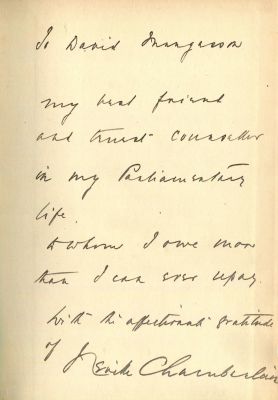 To David Margesson
my best friend
and truest counsellor
in my Parliamentary
life.
to whom I owe more
than I can ever repay.
with the affectionate gratitude
of Neville Chamberlain